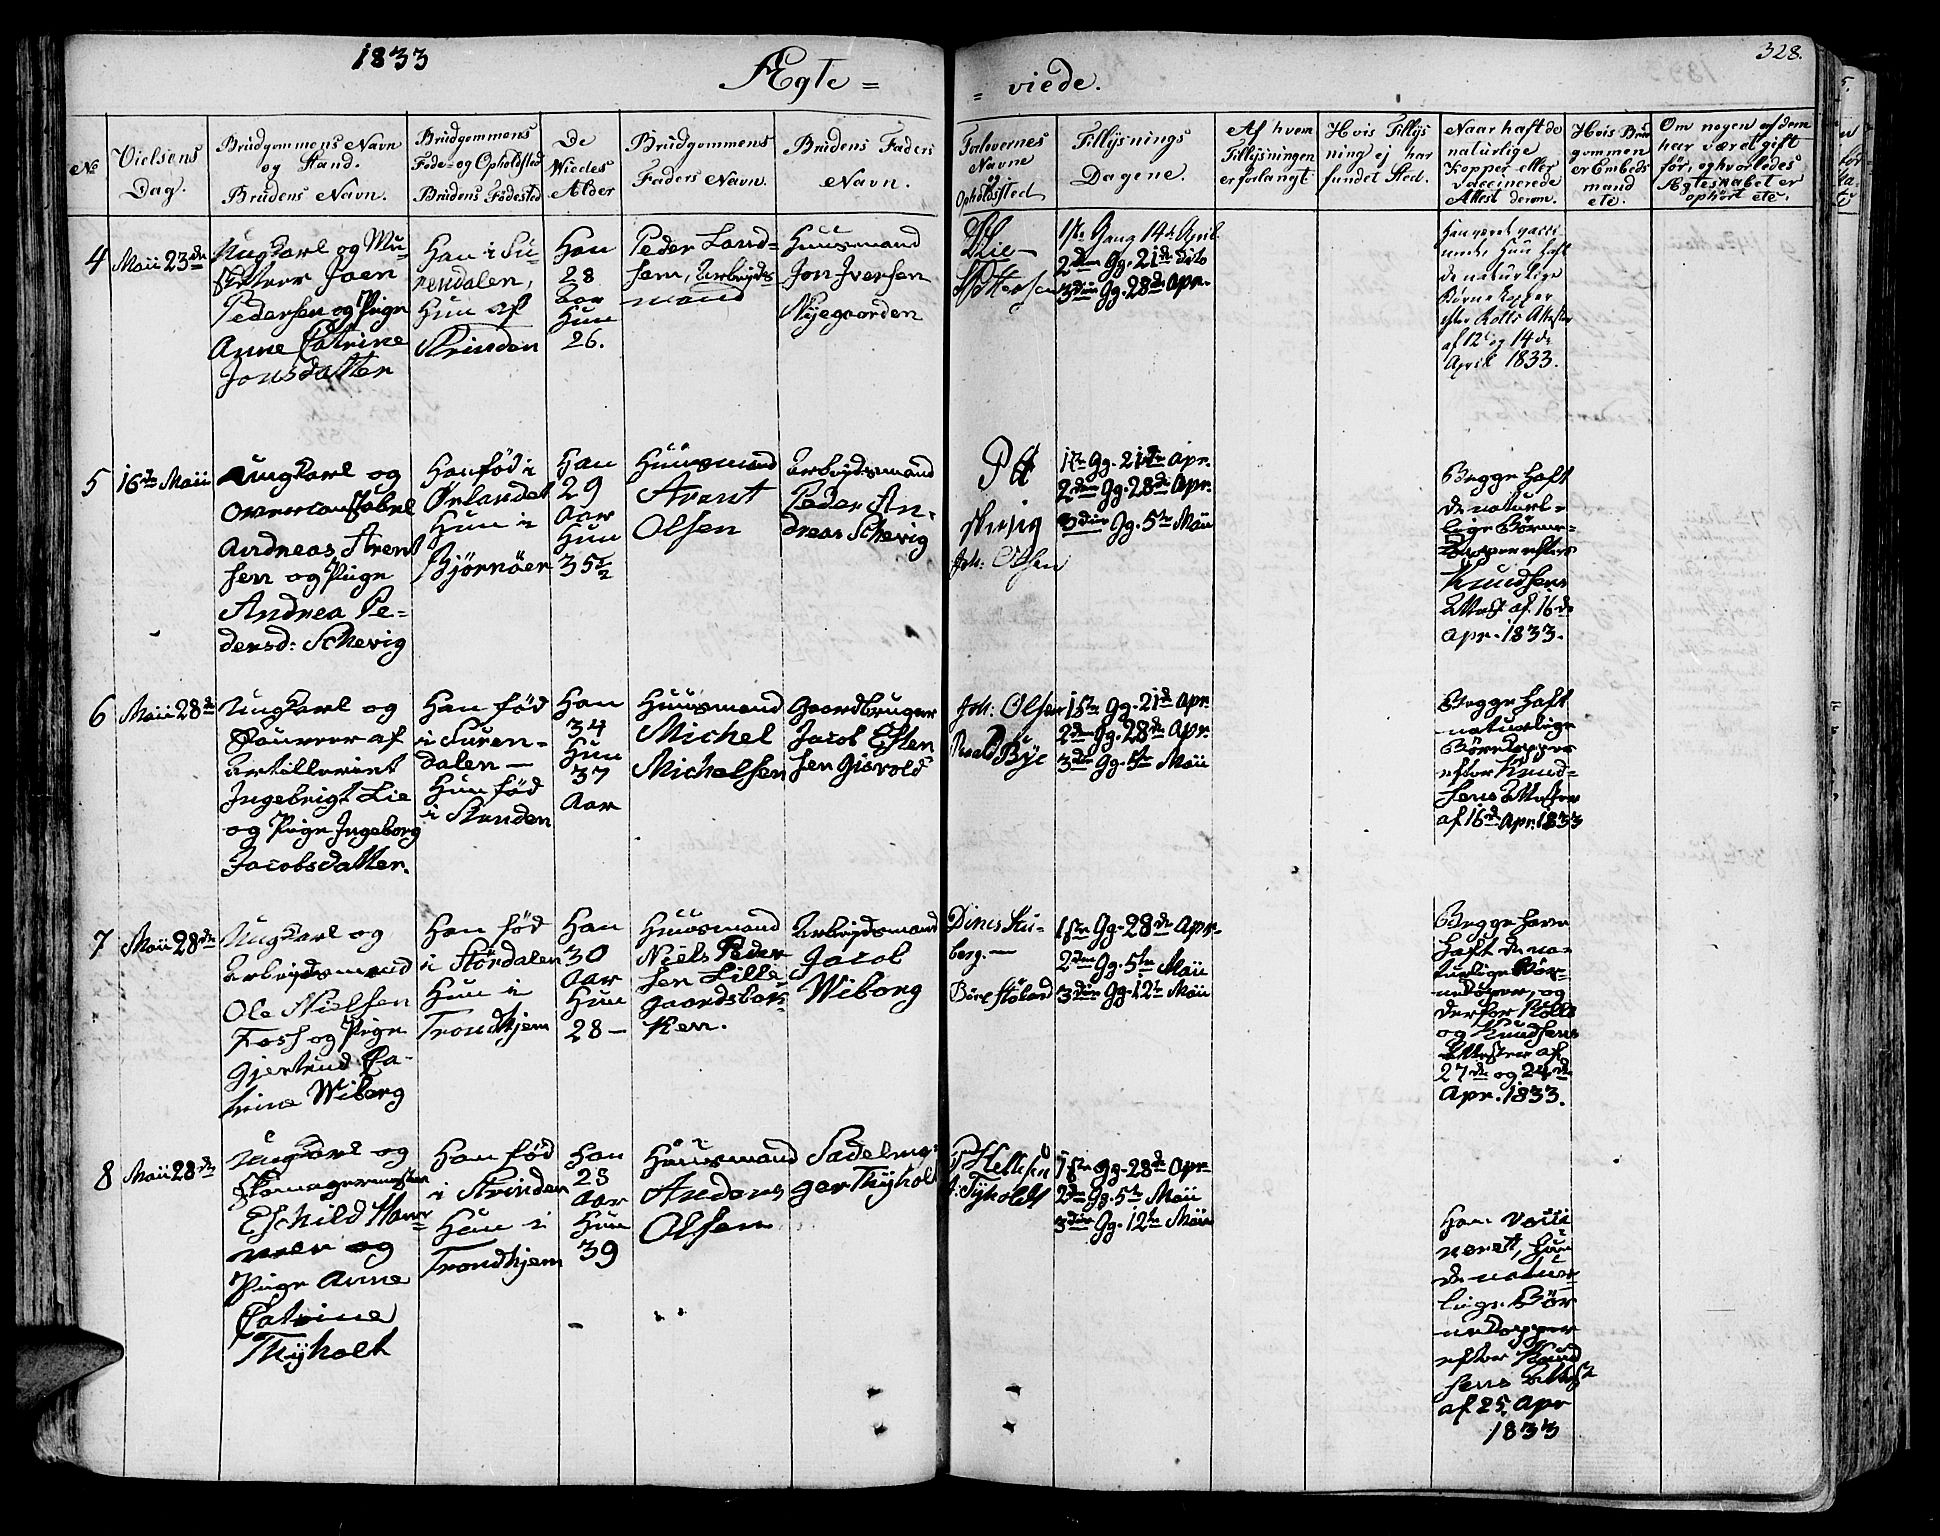 1833
Ægte =
= viede.
328.
No
Vielsens
Dag.
Brudgommens Navn
og Stand.
Brudens Navn.
Brudgommens
Føde- og Opholdsted
Brudens Fødested
De
Viedes
Alder
Brudgommens
Faders Navn.
Brudens Faders
Navn.
Forlovernes
Navne
og
Opholdssted
Tillysnings
Dagene.
Af hvem
Tillysningen
er forlangt.
Hvis Tillys
ning ej har
fundet Sted.
Naar haft de
naturlige
Kopper eller
vaccinerede
Attest derom.
Hvis Brud
gommen
er Embeds
mand
etc.
Om nogen af dem
har været gift
før, og hvorledes
Ægteskabet er
ophørt etc.
4
Maii 23de
Ungkarl og Mu-
Joen
Pedersen og Pige
Anne Catrine
Jonsdatter
Han i Su-
rendalen,
Hun af
Strinden
Han
28
Aar
Hun
26.
Peder Land-
sem, Arbejds
mand
Huusmand
Jon Iversen
Nyegaarden
Lie
1ste Gang 14de April
2den Gg. 21de dito
3die Gg. 28de Apr.
Han været vacci-
Hun haft
de naturlige
Børnekopper
efter Rolls Attester
af 12te og 14de
April 1833.
5
16de Maii
Ungkarl og
Overconstabel
Andreas Arent
sen og Pige
Andrea Pe-
dersd: Schevig
Han fød i
Ørlandet
Hun i
Bjørnöer
Han
29
Aar
Hun
35½
Huusmand
Arent
Olsen
Arbejdsmand
Peder An-
dreas Schevig
Joh: Olsen
1ste Gg. 21de Apr.
2den Gg. 28de Apr.
3die Gg. 5te Maii
Begge haft
de naturl-
lige Börne-
kopper efter
Knudsens
Attest af 16de
Apr. 1833.
6
Maii 28de
Ungkarl og
af
Artilleriet
Ingebrigt Lie
og Pige Ingeborg
Jacobsdatter.
Han fød
i Suren-
dalen —
Hun fød
i Strinden
Han
34
Hun
37
Aar
Huusmand
Michel
Michelsen
Gaardbruger
Jacob Esten
sen Gisvold
Joh: Olsen
Bye
1ste Gg. 21de Apr.
2den Gg. 28de Apr.
3die Gg. 5te Maii
Begge haft
naturlige
Börnekopper
efter Knud-
sens Attester
af 16de Apr. 1833
7
Maii 28de
Ungkarl og
Arbejdsmand
Ole Nielsen
Foss og Pige
Gjertrud Ca-
trine Wiborg
Han fød
i Stördalen
Hun i
Trondhjem
Han
30
Aar
Hun
28 —
Huusmand
Niels Peder
sen Lille
gaardsbak-
ken.
Arbejdsmand
Jacob
Wiborg
Dines Stu-
berg. —
1ste Gg. 28de Apr.
2den Gg. 5te Maii
3die Gg. 12te Maii
Begge have
haft de na-
turlige Bör-
nekopper, og
derfor Rolls
og Knudsens
Attester af
27de og 24de
Apr. 1833.
8
Maii 28de
Ungkarl og
Skomagermester
Eschild Ham-
mer og
Pige Anne
Catrine
Thyholt
Han fød
i Strinden
Hun i
Trondhjem
Han
25
Aar
Hun
39
Huusmand
Anders
Olsen
Sadelma-
ger Thyholt
Tyholdt
1ste Gg. 28de Apr.
2den Gg. 5te Maii
3die Gg. 12te Maii
Han vacci
neret, Hun
de natur-
lige Bör
nekopper
efter Knud
sens Attest
af 25. Apr
1833